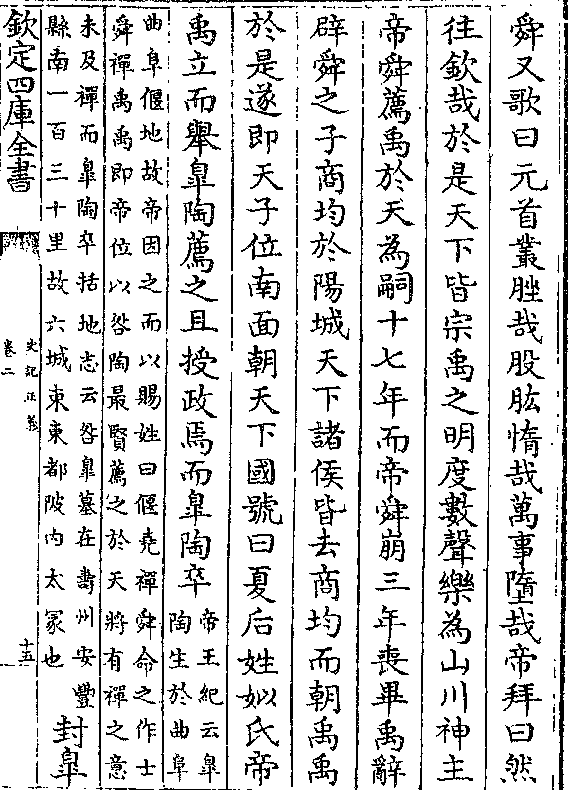 舜又歌曰元首叢脞哉股肱惰哉萬事墮哉帝拜曰然
往欽哉於是天下皆宗禹之明度數聲樂為山川神主
帝舜薦禹於天為嗣十七年而帝舜崩三年喪畢禹辭
辟舜之子商均於陽城天下諸侯皆去商均而朝禹禹
於是遂即天子位南面朝天下國號曰夏后姓姒氏帝
禹立而舉臯陶薦之且授政焉而臯陶卒
帝王紀云臯
陶生於曲阜
曲阜偃地故帝因之而以賜姓曰偃堯禪舜命之作士
舜禪禹禹即帝位以咎陶最賢薦之於天將有禪之意
未及禪而臯陶卒括地志云咎臯墓在壽州安豐
縣南一百三十里故六城東東都陂内大冢也
封臯
欽定四庫全書
史記正義
卷二
十五